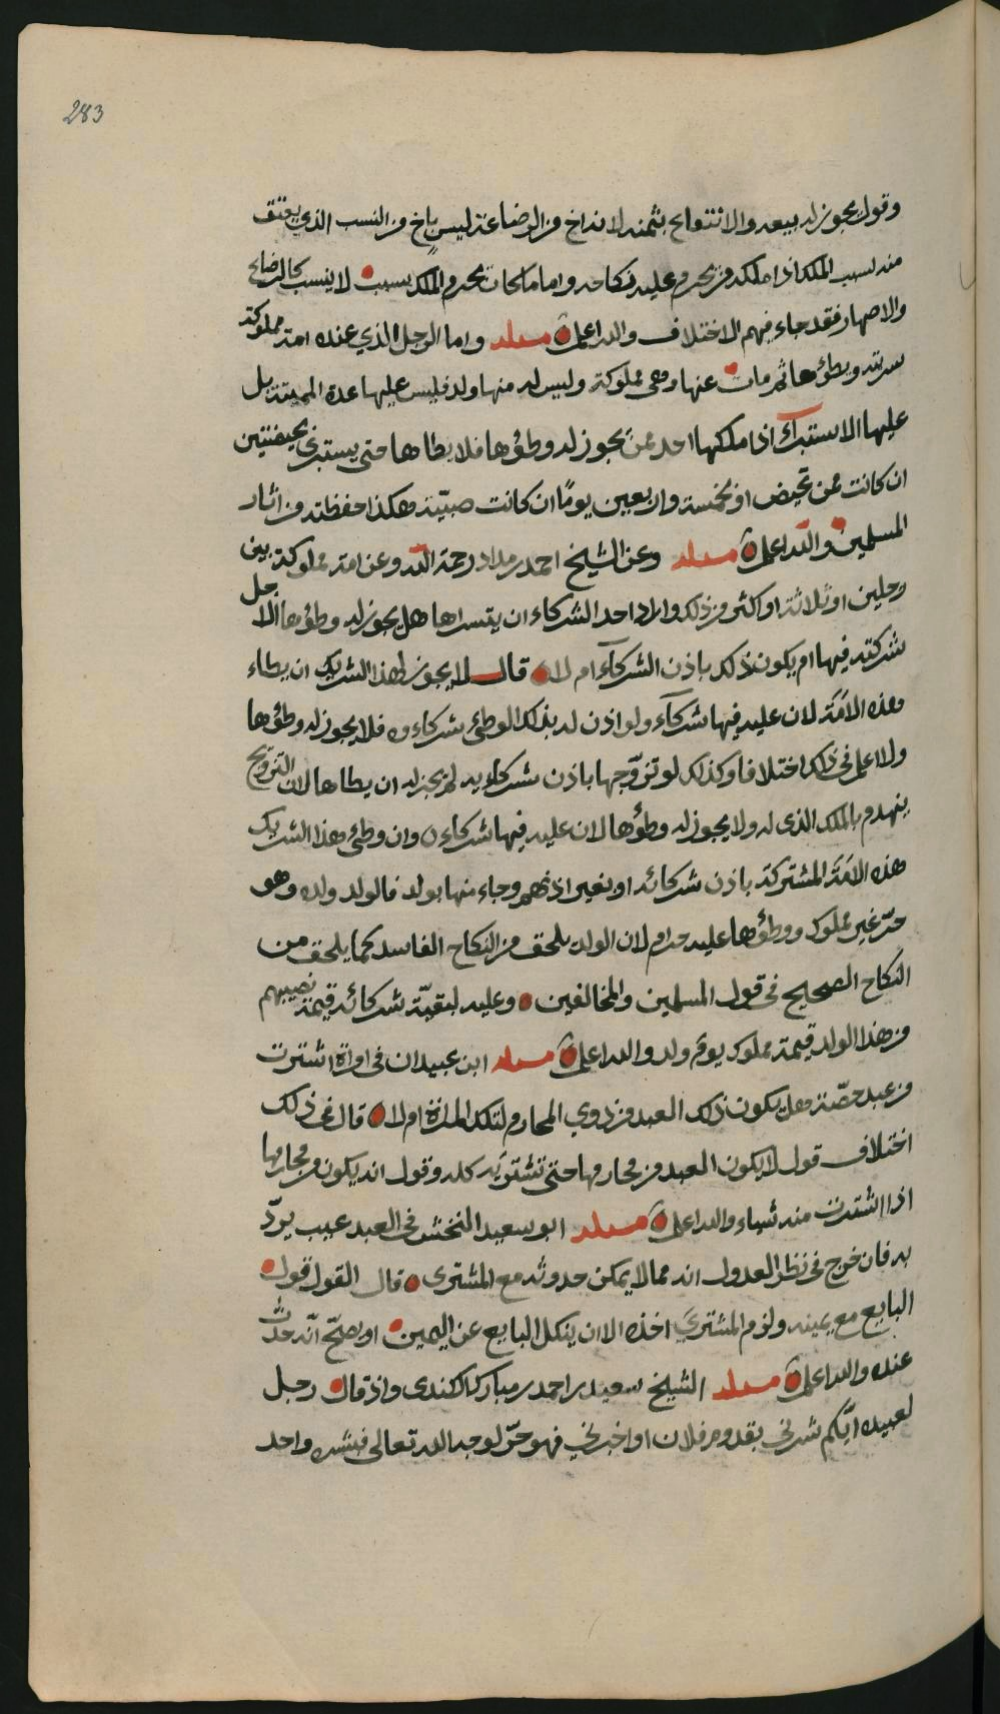 283
وقول يجوز له بيعه والانتفاع بثمنه لانه اخ من الرضاعة ليس باخ من النسب الذي يعتق
منه بسبب الملك اذا ملكه من يحرم عليه نكاحه واما ما كان يحرم الملك بسبب لا بنسب كالرضاع
والاصهار فقد جاء فيهم الاختلاف والله اعلم مسئلة واما الرجل الذي عنده امة مملوكة
سريته ويطؤها ثم مات عنها وهي مملوكة وليس له منها ولد فليس عليها عدة المميتة بل
عليها الاستبراء اذا ملكها احد ممن يجوز له وطؤها فلا يطاها حتى يستبري بحيضتين
ان كانت ممن تحيض او بخمسة واربعين يومًا ان كانت صبيّة هكذا حفظته من اثار
المسلمين والله اعلم مسئلة وعن الشيخ احمد بن مداد رحمة الله وعن امة مملوكة بين
رجلين او ثلاثة او اكثر من ذلك واراد احد الشركاء ان يتسراها هل يجوز له وطؤها لاجل
شركته فيها ام يكون ذلك باذن الشركآء ام لا قال لا يجوز لهذا الشريك ان يطاء
هذه الامَة لان عليه فيها شركآء ولو اذن له بذلك الوطئ شركاءوه فلا يجوز له وطؤها
ولا اعلم في ذلك اختلافا وكذلك لو تزوّجها باذن شركاويه لم يجز له ان يطاها لان التزويج
ينهدم بالملك الذي له ولا يجوز له وطؤها لان عليه فيها شركاء وان وطئ هذا الشريك
هذه الامَة المشتركة باذن شركائه او بغير اذنهم وجاء منها بولد فالولد ولده وهو
حرّ غير مملوك ووطؤها عليه حرام لان الولد يلحق من النكاح الفاسد كما يلحق من
النكاح الصحيح في قول المسلمين والمخالفين وعليه لبقيّة شركائه قيمة نصيبهم
من هذا الولد قيمة مملوك يوم ولد والله اعلم مسئلة ابن عبيدان في امراة اشترت
من عبد حصّة هل يكون ذلك العبد من ذوي المحارم لتلك المراة ام لا قال في ذلك
اختلاف قول لا يكون العبد من محارمها حتى تشتريه كله وقول انه يكون من محارمها
اذا اشترت منه شيئاء والله اعلم مسئلة ابو سعيد النخش في العبد عيب يردّ
به فان خرج في نظر العدول انه مما لا يمكن حدوثه مع المشتري قال القول قول
البايع مع يمينه ولزم المشتري اخذه الا ان ينكل البايع عن اليمين او يصحّ انّه حدث
عنده والله اعلم مسئلة الشيخ سعيد بن احمد بن مبارك الكندي واذ قال رجل
لعبيده ايّكم بشرني بقدوم فلان او اخبرني فهو حرّ لوجه الله تعالى فبشره واحد